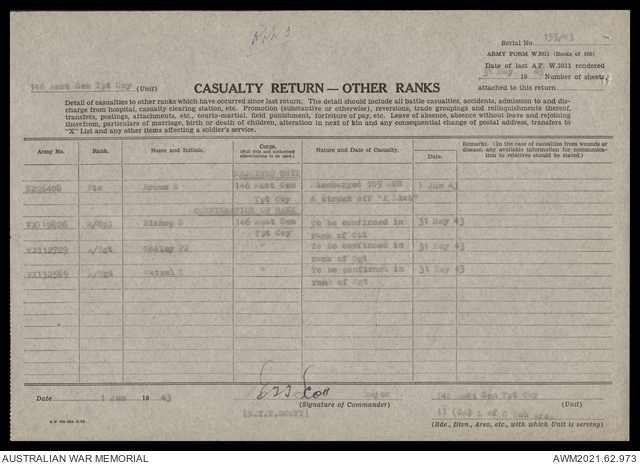 Serial No. 155/43
ARMY FORM W.3011 (Books of 100)
Date of last A.F. W.3011 rendered
31 May 19 43 Number of sheets
146 Aust Gen Tpt Coy (Unit) CASUALTY RETURN — OTHER RANKS attached to this return
Detail of casualties to other ranks which have occurred since last return. The detail should include all battle casualties, accidents, admission to and dis-
charge from hospital, casualty clearing station, etc. Promotion (substantive or otherwise), reversions, trade groupings and relinquishments thereof,
transfers, postings, attachments, etc., courts-martial, field punishment, forfeiture of pay, etc. Leave of absence, absence without leave and rejoining
therefrom, particulars of marriage, birth or death of children, alteration in next of kin and any consequential change of postal address, transfers to
"X" List and any other items affecting a soldier's service.
Army No. Rank. Name and Initials. Corps. (Full title and authorised abbreviations to be used.) Nature and Date of Casualty. Date. Remarks. (In the case of casualties from wounds or disease, any available information for communica-tion to relatives should be stated.)
REJOINED UNIT
Pte Brown 146 Aust Gen Discharged 1 Jun 43
Tpt Coy & struck off "X List"
CONFIRMATION OF RANK
A/Cpl 146 Aust Gen To be confirmed in 31 May 43
Tpt Coy rank of Cpl
VX112729 A/Sgt " To be confirmed in 31 May 43
rank of Sgt
VX132569 A/Sgt Wetzel " To be confirmed in 31 May 43
rank of Sgt
Date 1 Jun 19 43 Major 146 Aust Gen Tpt Coy
(Signature of Commander) (Unit)
SCOTT) L of C Sub Area
(Bde., Divn., Area, etc., with which Unit is serving)
AUSTRALIAN WAR MEMORIAL AWM2021.62.973